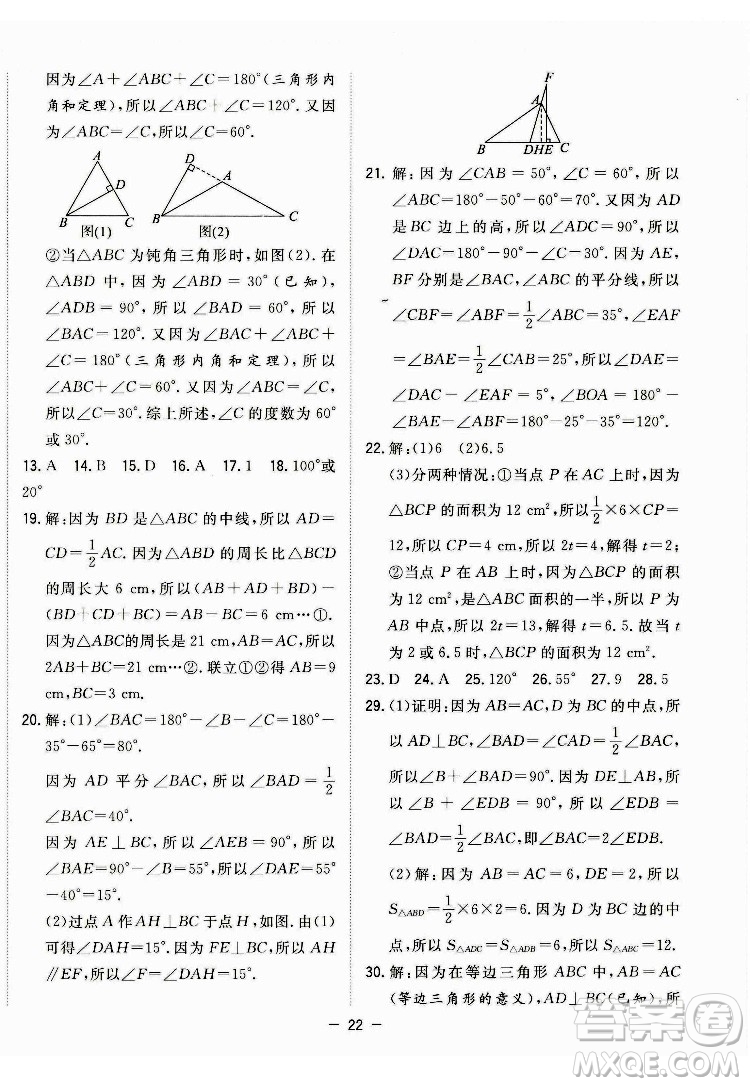 因为∠A+∠ABC+∠C=180°(三角形内
角和定理),所以∠ABC+∠C=120°. 又因
为∠ABC=∠C,所以∠C=60°.
A
D
B
C
图(1)
D
A
B
C
图(2)
②当△ABC为钝角三角形时,如图(2). 在
△ABD中,因为∠ABD=30°(已知),
∠ADB=90°,所以∠BAD=60°. 所以
∠BAC=120°. 又因为∠BAC+∠ABC+
∠C=180°(三角形内角和定理),所以
∠ABC+∠C=60°. 因为∠ABC=∠C,
所以∠C=30°. 综上所述,∠C的度数为60°
或30°.
13. A 14. B 15. D 16. A 17. 1 18. 100°或
20°
19. 解:因为BD是△ABC的中线,所以AD=
CD=1/2AC. 因为△ABD的周长比△BCD
的周长大6 cm,所以(AB+AD+BD)-
(BD+CD+BC)=AB-BC=6 cm…①.
因为△ABC的周长是21 cm,AB=AC,所以
2AB+BC=21 cm…②. 联立①②得AB=9
cm,BC=3 cm.
20. 解:(1)∠BAC=180°-∠B-∠C=180°-
35°-65°=80°.
因为AD平分∠BAC,所以∠BAD=1/2
∠BAC=40°.
因为AE⊥BC,所以∠AEB=90°,所以
∠BAE=90°-∠B=55°,所以∠DAE=55°
-40°=15°.
(2)过点A作AH⊥BC于点H,如图. 由(1)
可得∠DAH=15°. 因为FE⊥BC,所以AH
∥EF,所以∠F=∠DAH=15°.
F
A
B
DHE
C
21. 解:因为∠CAB=50°,∠C=60°,所以
∠ABC=180°-50°-60°=70°. 又因为AD
是BC边上的高,所以∠ADC=90°,所以
∠DAC=180°-90°-∠C=30°. 因为AE,
BF分别是∠BAC,∠ABC的平分线,所以
∠CBF=∠ABF=1/2∠ABC=35°,∠EAF
=∠BAE=1/2∠BAC=25°,所以∠DAE=
∠DAC-∠EAF=5°,∠BOA=180°-
∠BAE-∠ABF=180°-25°-35°=120°.
22. 解:(1)6 (2)6.5
(3)分两种情况:①当点P在AC上时,因为
△BCP的面积为12 cm²,所以1/2×6×CP=
12,所以CP=4 cm,所以2t=4,解得t=2;
②当点P在AB上时,因为△BCP的面积
为12 cm²,是△ABC面积的一半,所以P为
AB中点,所以2t=13,解得t=6.5. 故当t
为2或6.5时,△BCP的面积为12 cm².
23. D 24. A 25. 120° 26. 55° 27. 9 28. 5
29. (1)证明:因为AB=AC,D为BC的中点,所
以AD⊥BC,∠BAD=∠CAD=1/2∠BAC,
所以∠B+∠BAD=90°. 因为DE⊥AB,所
以∠B+∠EDB=90°,所以∠EDB=
∠BAD=1/2∠BAC,即∠BAC=2∠EDB.
(2)解:因为AB=AC=6,DE=2,所以
S△ABD=1/2×6×2=6. 因为D为BC边的中
点,所以S△ADC=S△ADB=6,所以S△ABC=12.
30. 解:因为在等边三角形ABC中,AB=AC
(等边三角形的意义),AD⊥BC(已知),所
- 22 -
答案圈
MXQE.COM